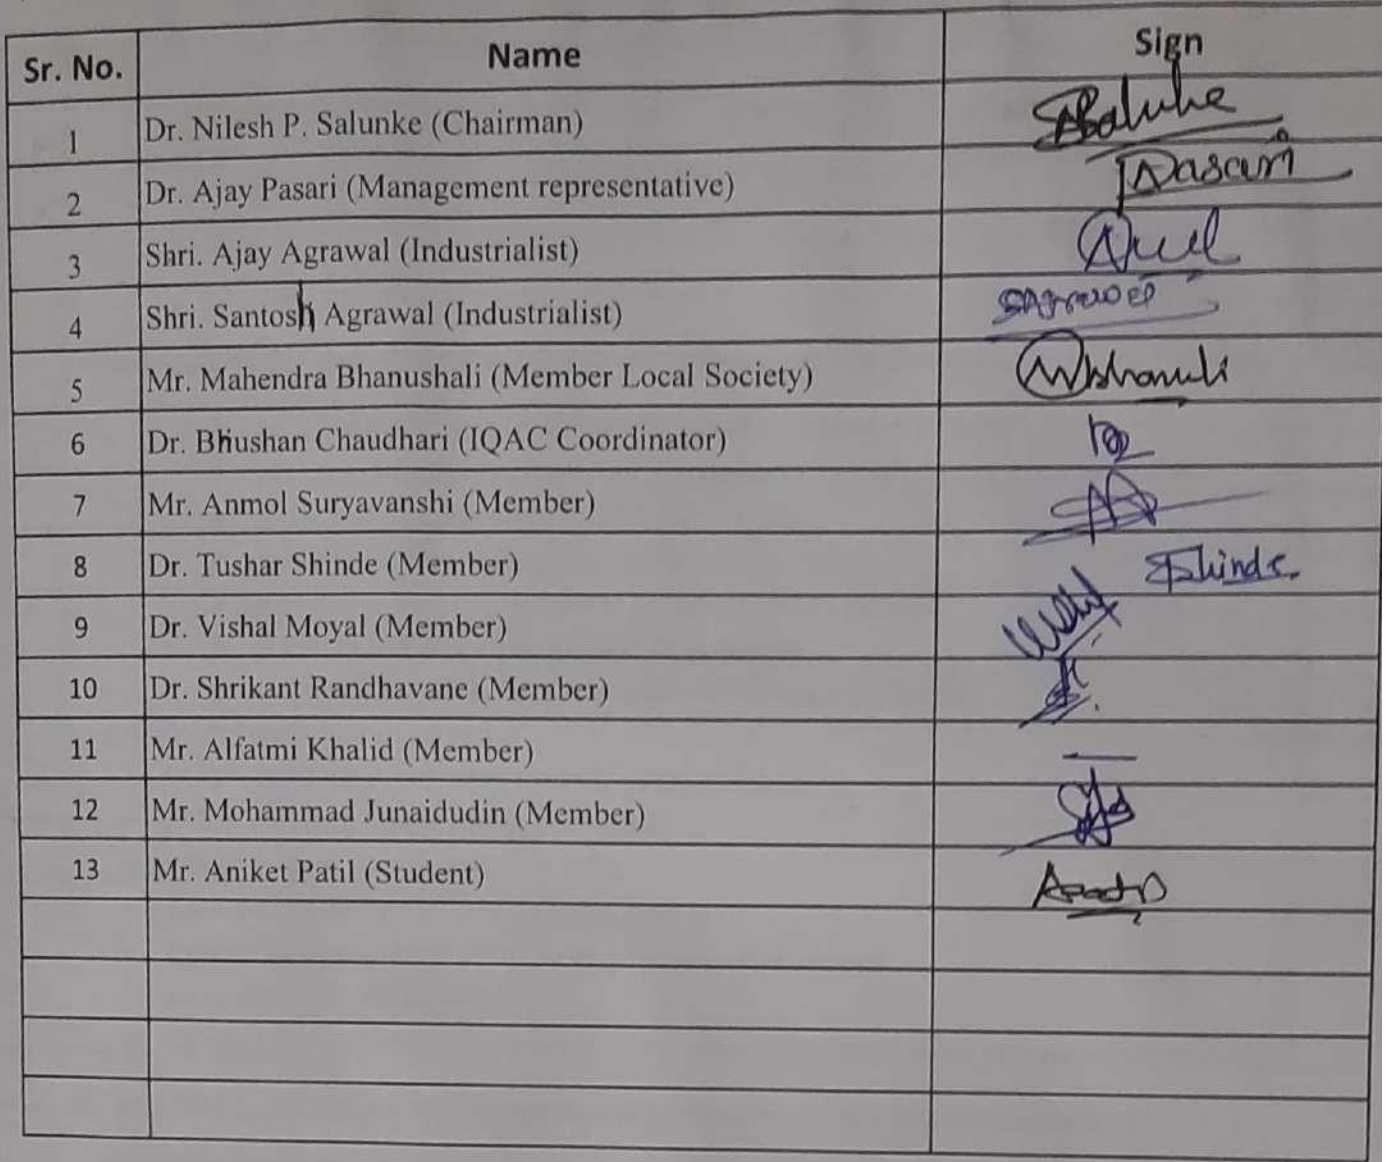 Sr. No. Name Sign
1 Dr. Nilesh P. Salunke (Chairman) Salunke
2 Dr. Ajay Pasari (Management representative) Pasari
3 Shri. Ajay Agrawal (Industrialist)
4 Shri. Santosh Agrawal (Industrialist) SAgrawal
5 Mr. Mahendra Bhanushali (Member Local Society)
6 Dr. Bhushan Chaudhari (IQAC Coordinator)
7 Mr. Anmol Suryavanshi (Member)
8 Dr. Tushar Shinde (Member) Shinde
9 Dr. Vishal Moyal (Member)
10 Dr. Shrikant Randhavane (Member)
11 Mr. Alfatmi Khalid (Member) —
12 Mr. Mohammad Junaidudin (Member)
13 Mr. Aniket Patil (Student)